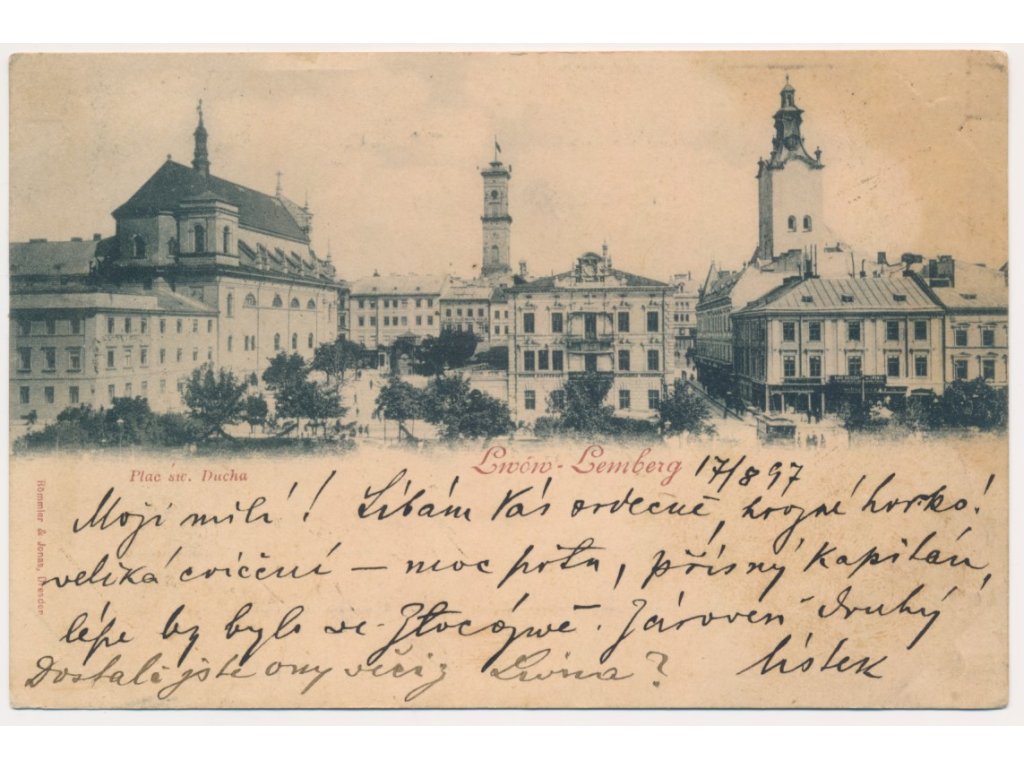 Lwów - Lemberg 17/8 97
Plac św. Ducha
Römmler & Jonas, Dresden
Moji milí! Líbám Vás srdečně, hrozné horko!
veliká cvíčení – moc potu, přísný Kapitán,
lépe by bylo ve Złoczówě. Zároveň druhý
lístek
Dostali jste ony věci z Lwówa?